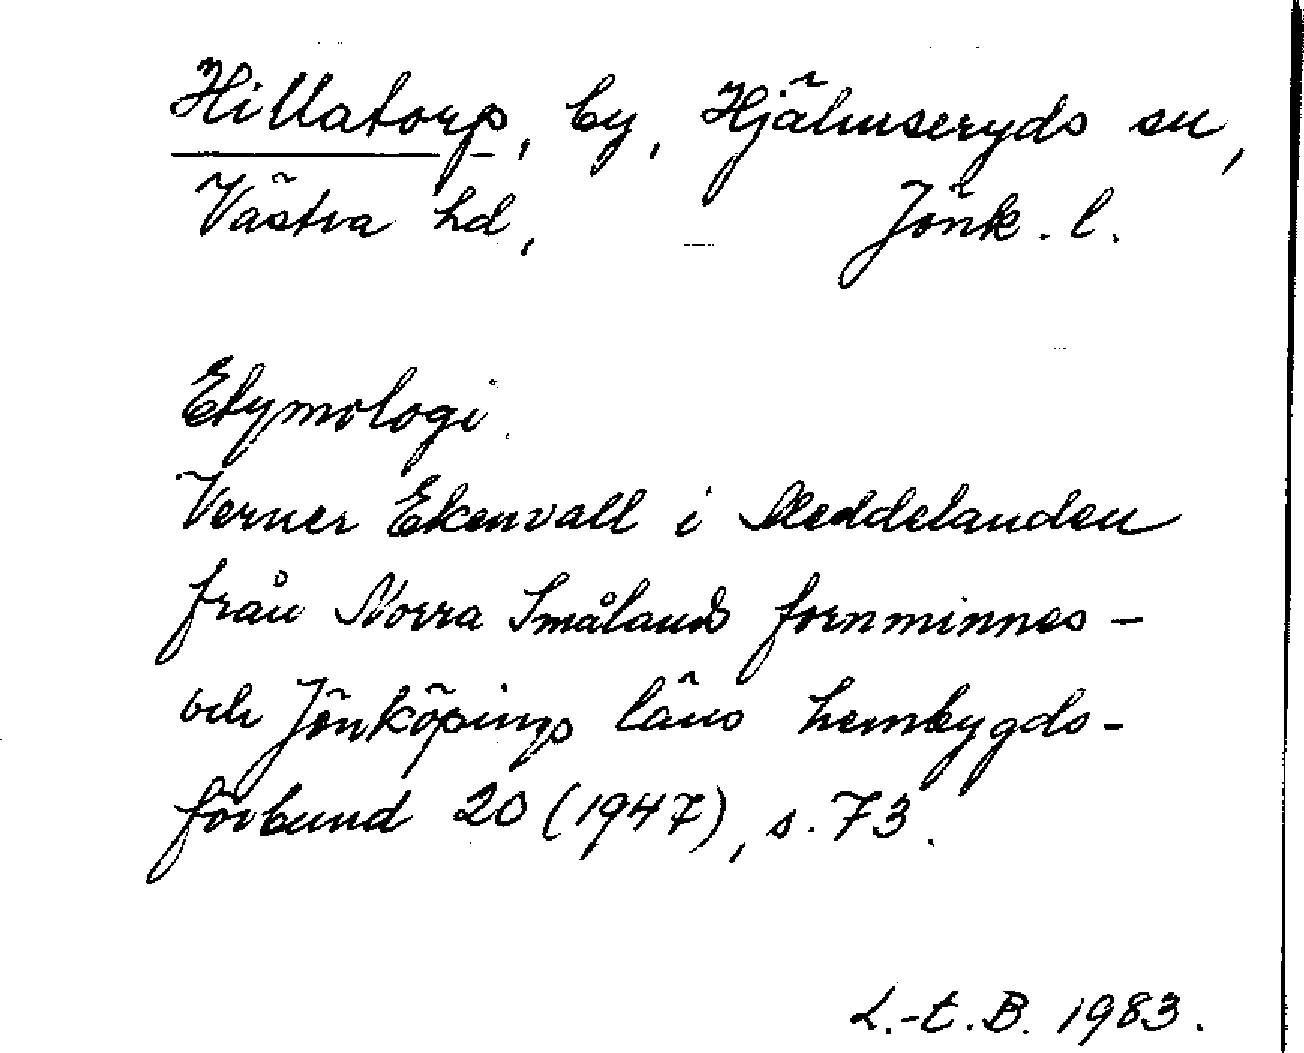 Hillatorp, by, Hjälmseryds sn,
Västra hd, Jönk. l.
Etymologi.
Verner Ekenvall i Meddelanden
från Norra Smålands fornminnes-
och Jönköpings läns hembygds-
förbund 20 (1947), s. 73.
L.-t. B. 1983.